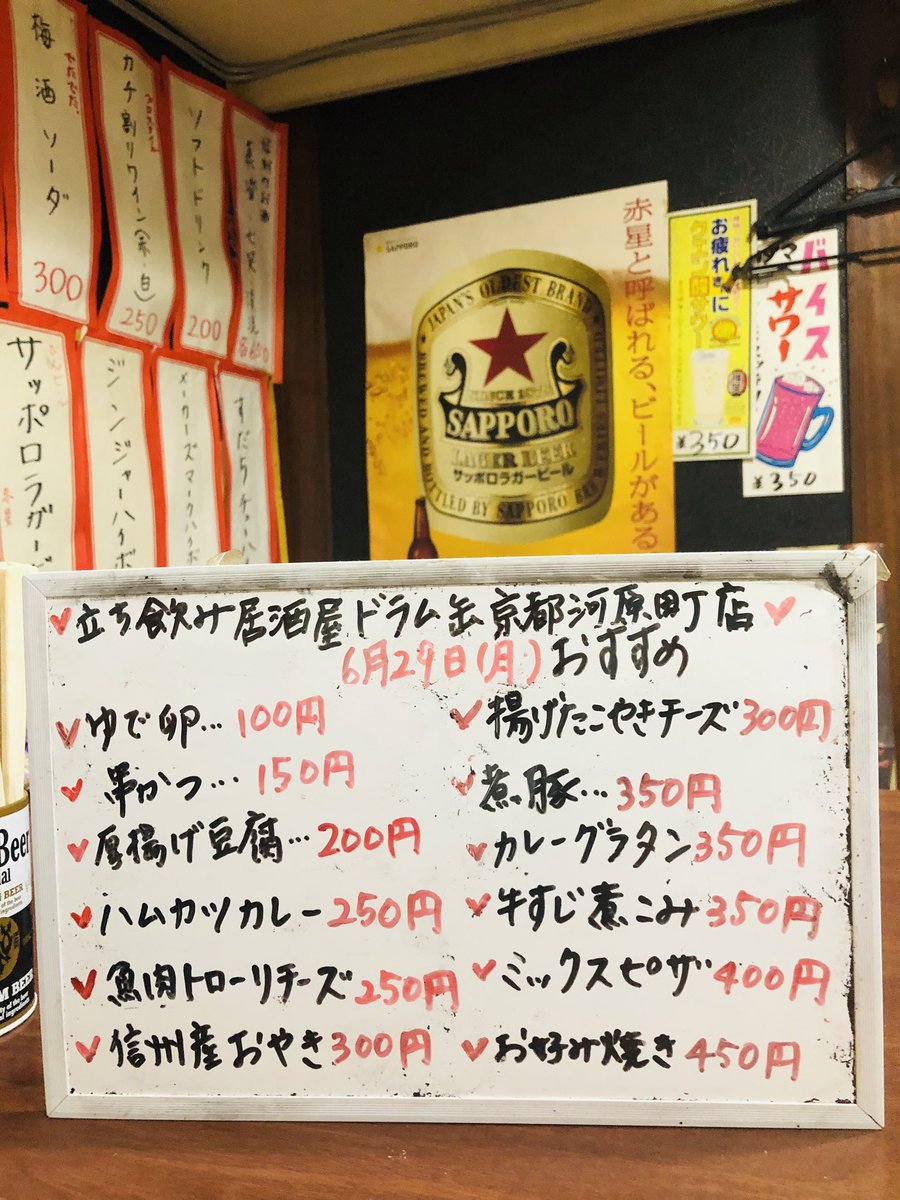 梅酒ソーダ
300
カチ割りワイン(赤・白)
250
ソフトドリンク
200
サッポロラガービ
ジンジャーハイボ
メーカーズマークハイボ
すだちチュー
SAPPORO
赤星と呼ばれる、ビールがある
JAPAN'S OLDEST BRAND
SAPPORO
LAGER BEER
サッポロラガービール
BREWED AND BOTTLED BY SAPPORO
お疲れさんに
¥350
バイス
サワー
¥350
立ち飲み居酒屋ドラム缶京都河原町店
6月29日(月)おすすめ
ゆで卵…100円
串かつ…150円
厚揚げ豆腐…200円
ハムカツカレー250円
魚肉トローリチーズ250円
信州産おやき300円
揚げたこやきチーズ300円
煮豚…350円
カレーグラタン350円
牛すじ煮こみ350円
ミックスピザ400円
お好み焼き450円
Beer
BEER